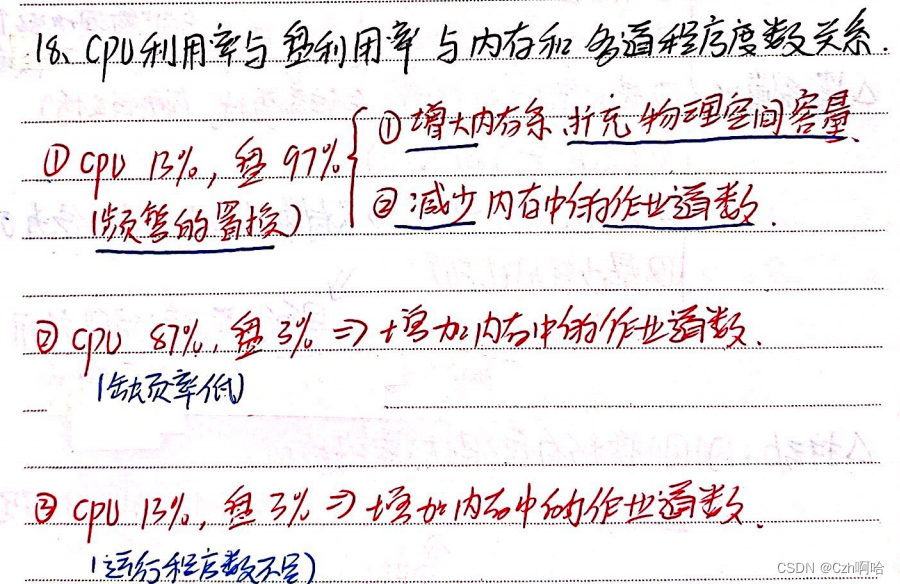 18、CPU利用率与盘利用率与内存和多道程序度数关系.
① CPU 13%, 盘 97%
(频繁的置换)
① 增大内存条 扩充物理空间容量
② 减少内存中的作业道数.
② CPU 87%, 盘 3% ⇒ 增加内存中的作业道数.
(缺页率低)
③ CPU 13%, 盘 3% ⇒ 增加内存中的作业道数.
(运行程序数不足)
CSDN @Czh啊哈